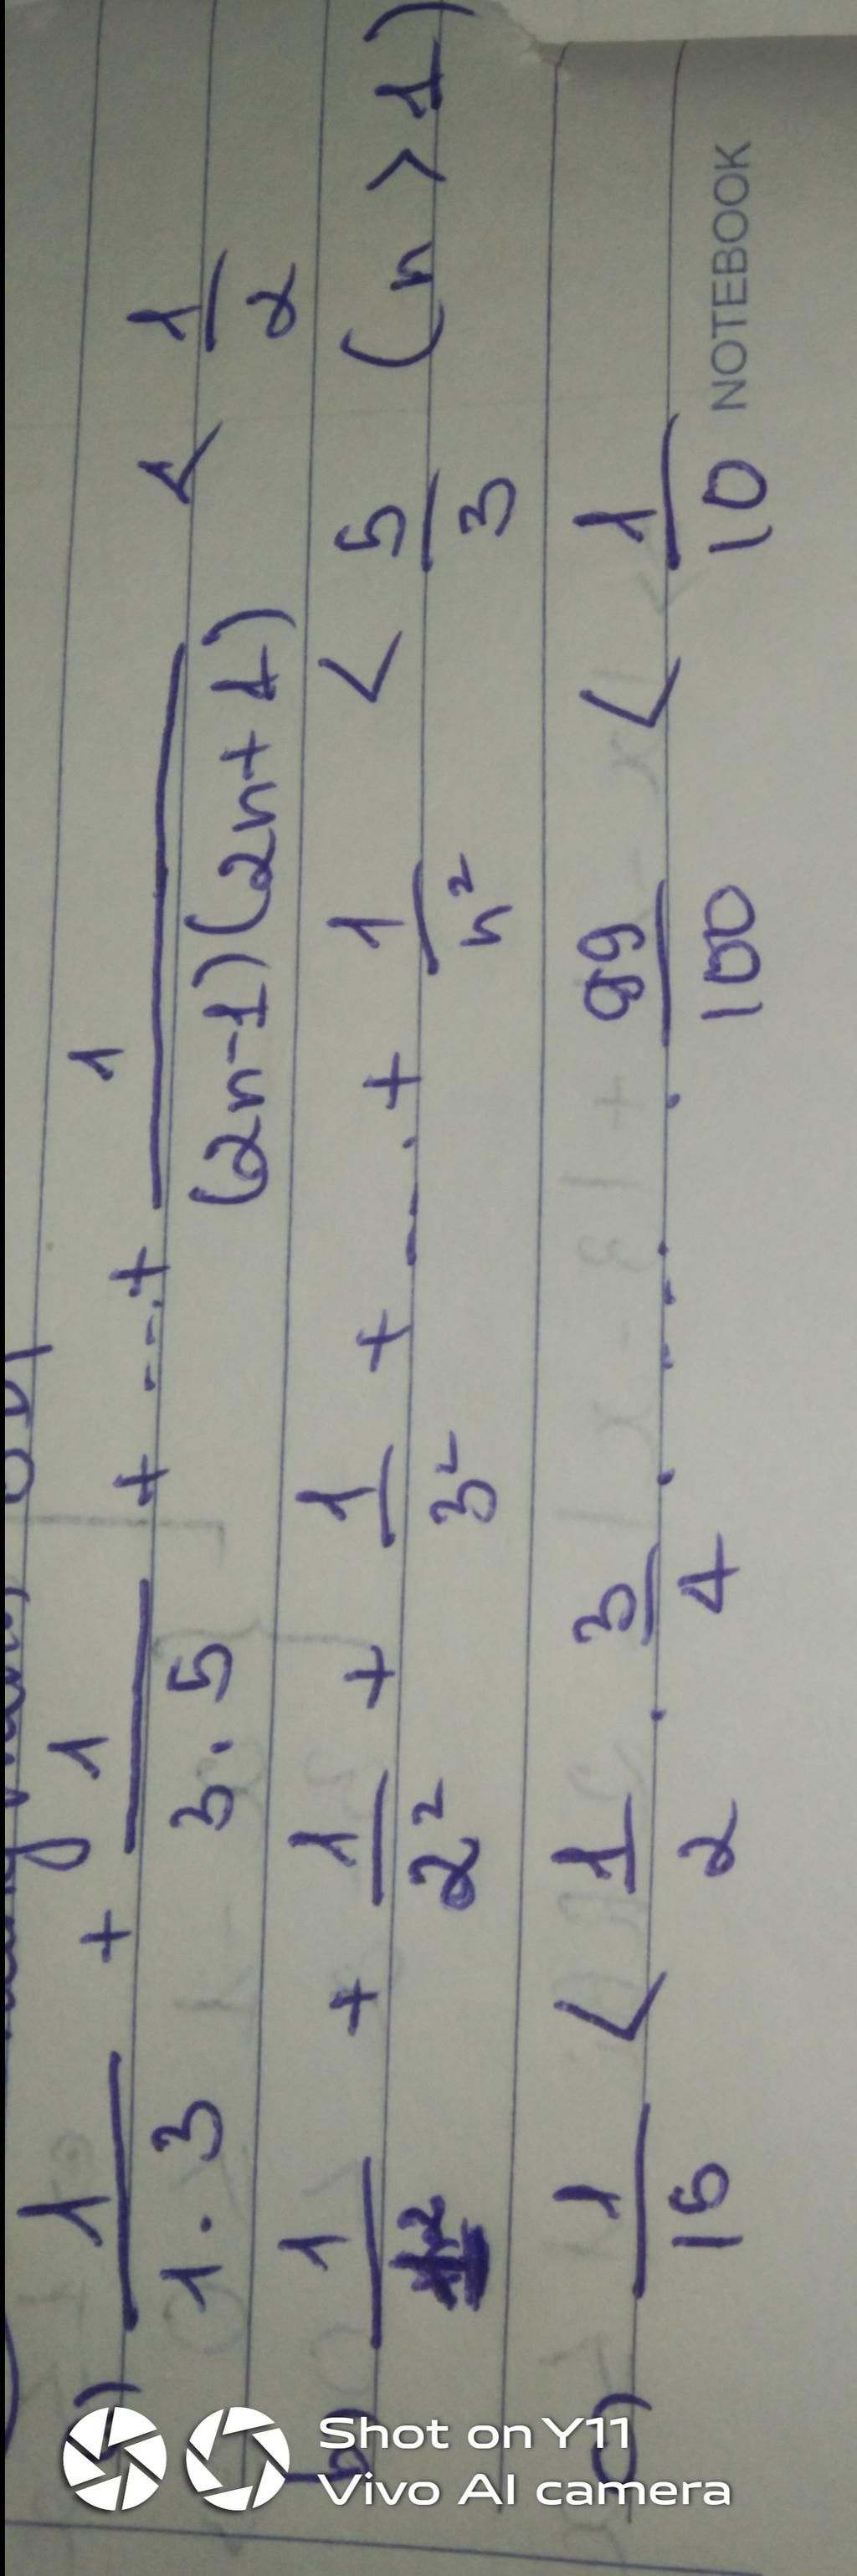 a) 1/(1.3) + 1/(3.5) + ...+ 1/((2n-1)(2n+1)) < 1/2
b) 1/1² + 1/2² + 1/3² + ....+ 1/n² < 5/3 (n > 1)
c) 1/15 < 1/2 . 3/4 ..... 99/100 < 1/10
NOTEBOOK
Shot on Y11
Vivo AI camera